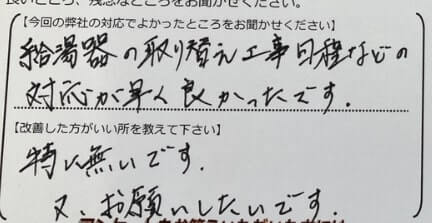 良いところ、残念なところをお聞かせください。
【今回の弊社の対応でよかったところをお聞かせください】
給湯器の取り替え工事日程などの
対応が早く良かったです.
【改善した方がいい所を教えて下さい】
特に無いです.
又、お願いしたいです.